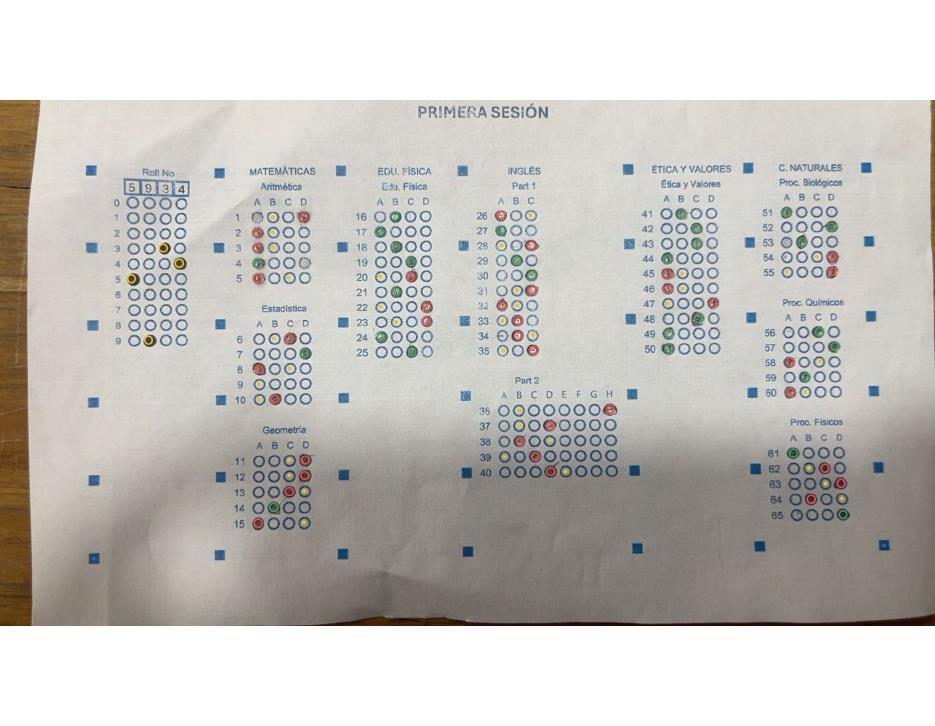 PRIMERA SESIÓN
Roll No
5 9 3 4
0
1
2
3
4
5
6
7
8
9
MATEMÁTICAS
Aritmética
A B C D
1
2
3
4
5
Estadística
A B C D
6
7
8
9
10
Geometría
A B C D
11
12
13
14
15
EDU. FÍSICA
Edu. Física
A B C D
16
17
18
19
20
21
22
23
24
25
INGLÉS
Part 1
A B C
26
27
28
29
30
31
32
33
34
35
Part 2
A B C D E F G H
36
37
38
39
40
ÉTICA Y VALORES
Ética y Valores
A B C D
41
42
43
44
45
46
47
48
49
50
C. NATURALES
Proc. Biológicos
A B C D
51
52
53
54
55
Proc. Químicos
A B C D
56
57
58
59
60
Proc. Físicos
A B C D
61
62
63
64
65